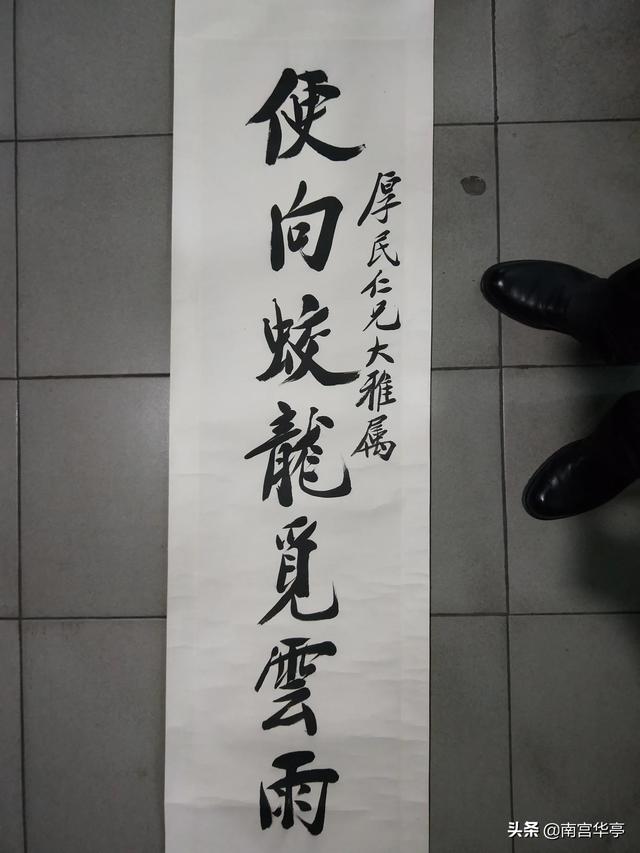 厚民仁兄大雅属
便向蛟龍覓雲雨
头条 @南宫华亭